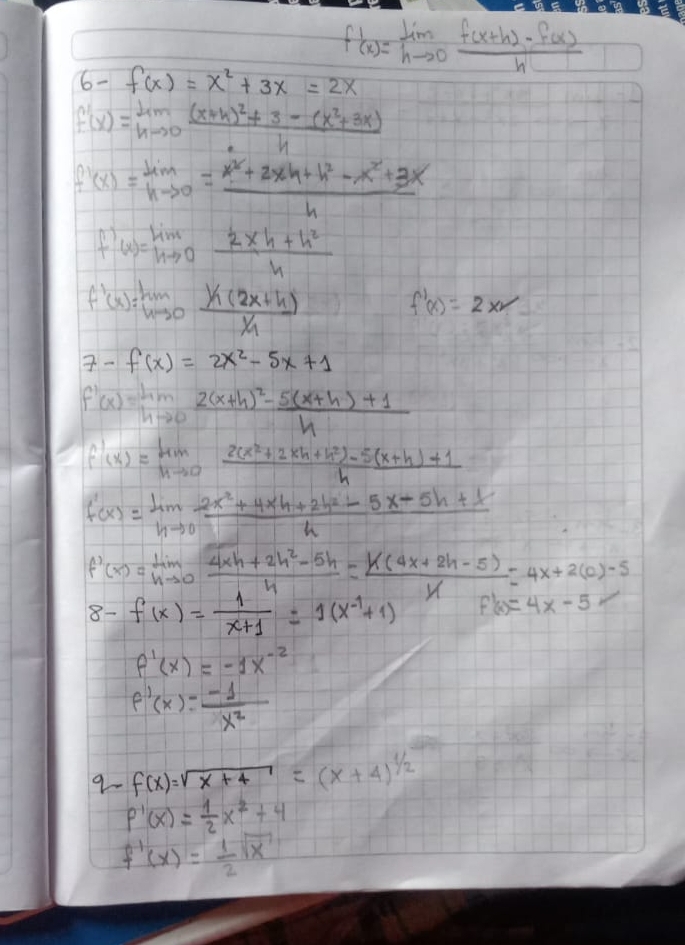 f'(x)= lim h→0 f(x+h) - f(x) / h
6- f(x) = x² + 3x = 2x
f'(x) = lim h→0 (x+h)² + 3 - (x²+3x) / h
f'(x) = lim h→0 = x² + 2xh + h² - x² + 3x / h
f'(x)= lim h→0 2xh + h² / h
f'(x)= lim h→0 h(2x+h) / h f'(x) = 2x✓
7- f(x) = 2x² - 5x + 1
f'(x)= lim h→0 2(x+h)² - 5(x+h) + 1 / h
f'(x) = lim h→0 2(x²+2xh+h²) - 5(x+h) + 1 / h
f'(x) = lim h→0 2x² + 4xh + 2h² - 5x - 5h + 1 / h
f'(x) = lim h→0 4xh + 2h² - 5h / h = h(4x + 2h - 5) / h = 4x + 2(0) - 5
f'(x) = 4x - 5 ✓
8- f(x) = 1 / x+1 = 1(x⁻¹+1)
f'(x) = -1x⁻²
f'(x) = -1 / x²
9- f(x)=√x + 4 = (x + 4)^1/2
f'(x) = 1/2 x² + 4
f'(x) = 1/2 √x